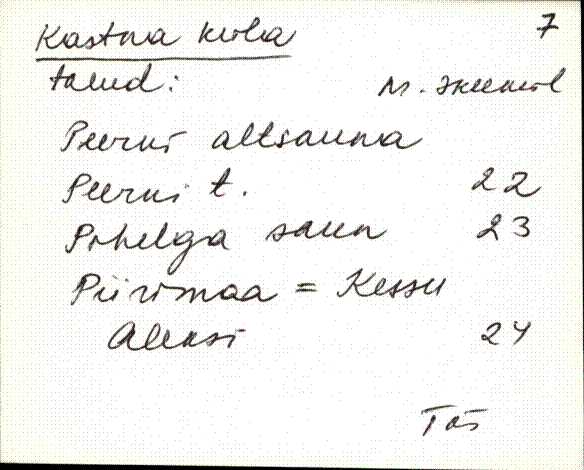 Kastna küla 7
talud: M. skeemil
Peerni altsauna
Peerni t. 22
Pohelga saun 23
Piirimaa = Kessu
Aleksi 24
Tõs